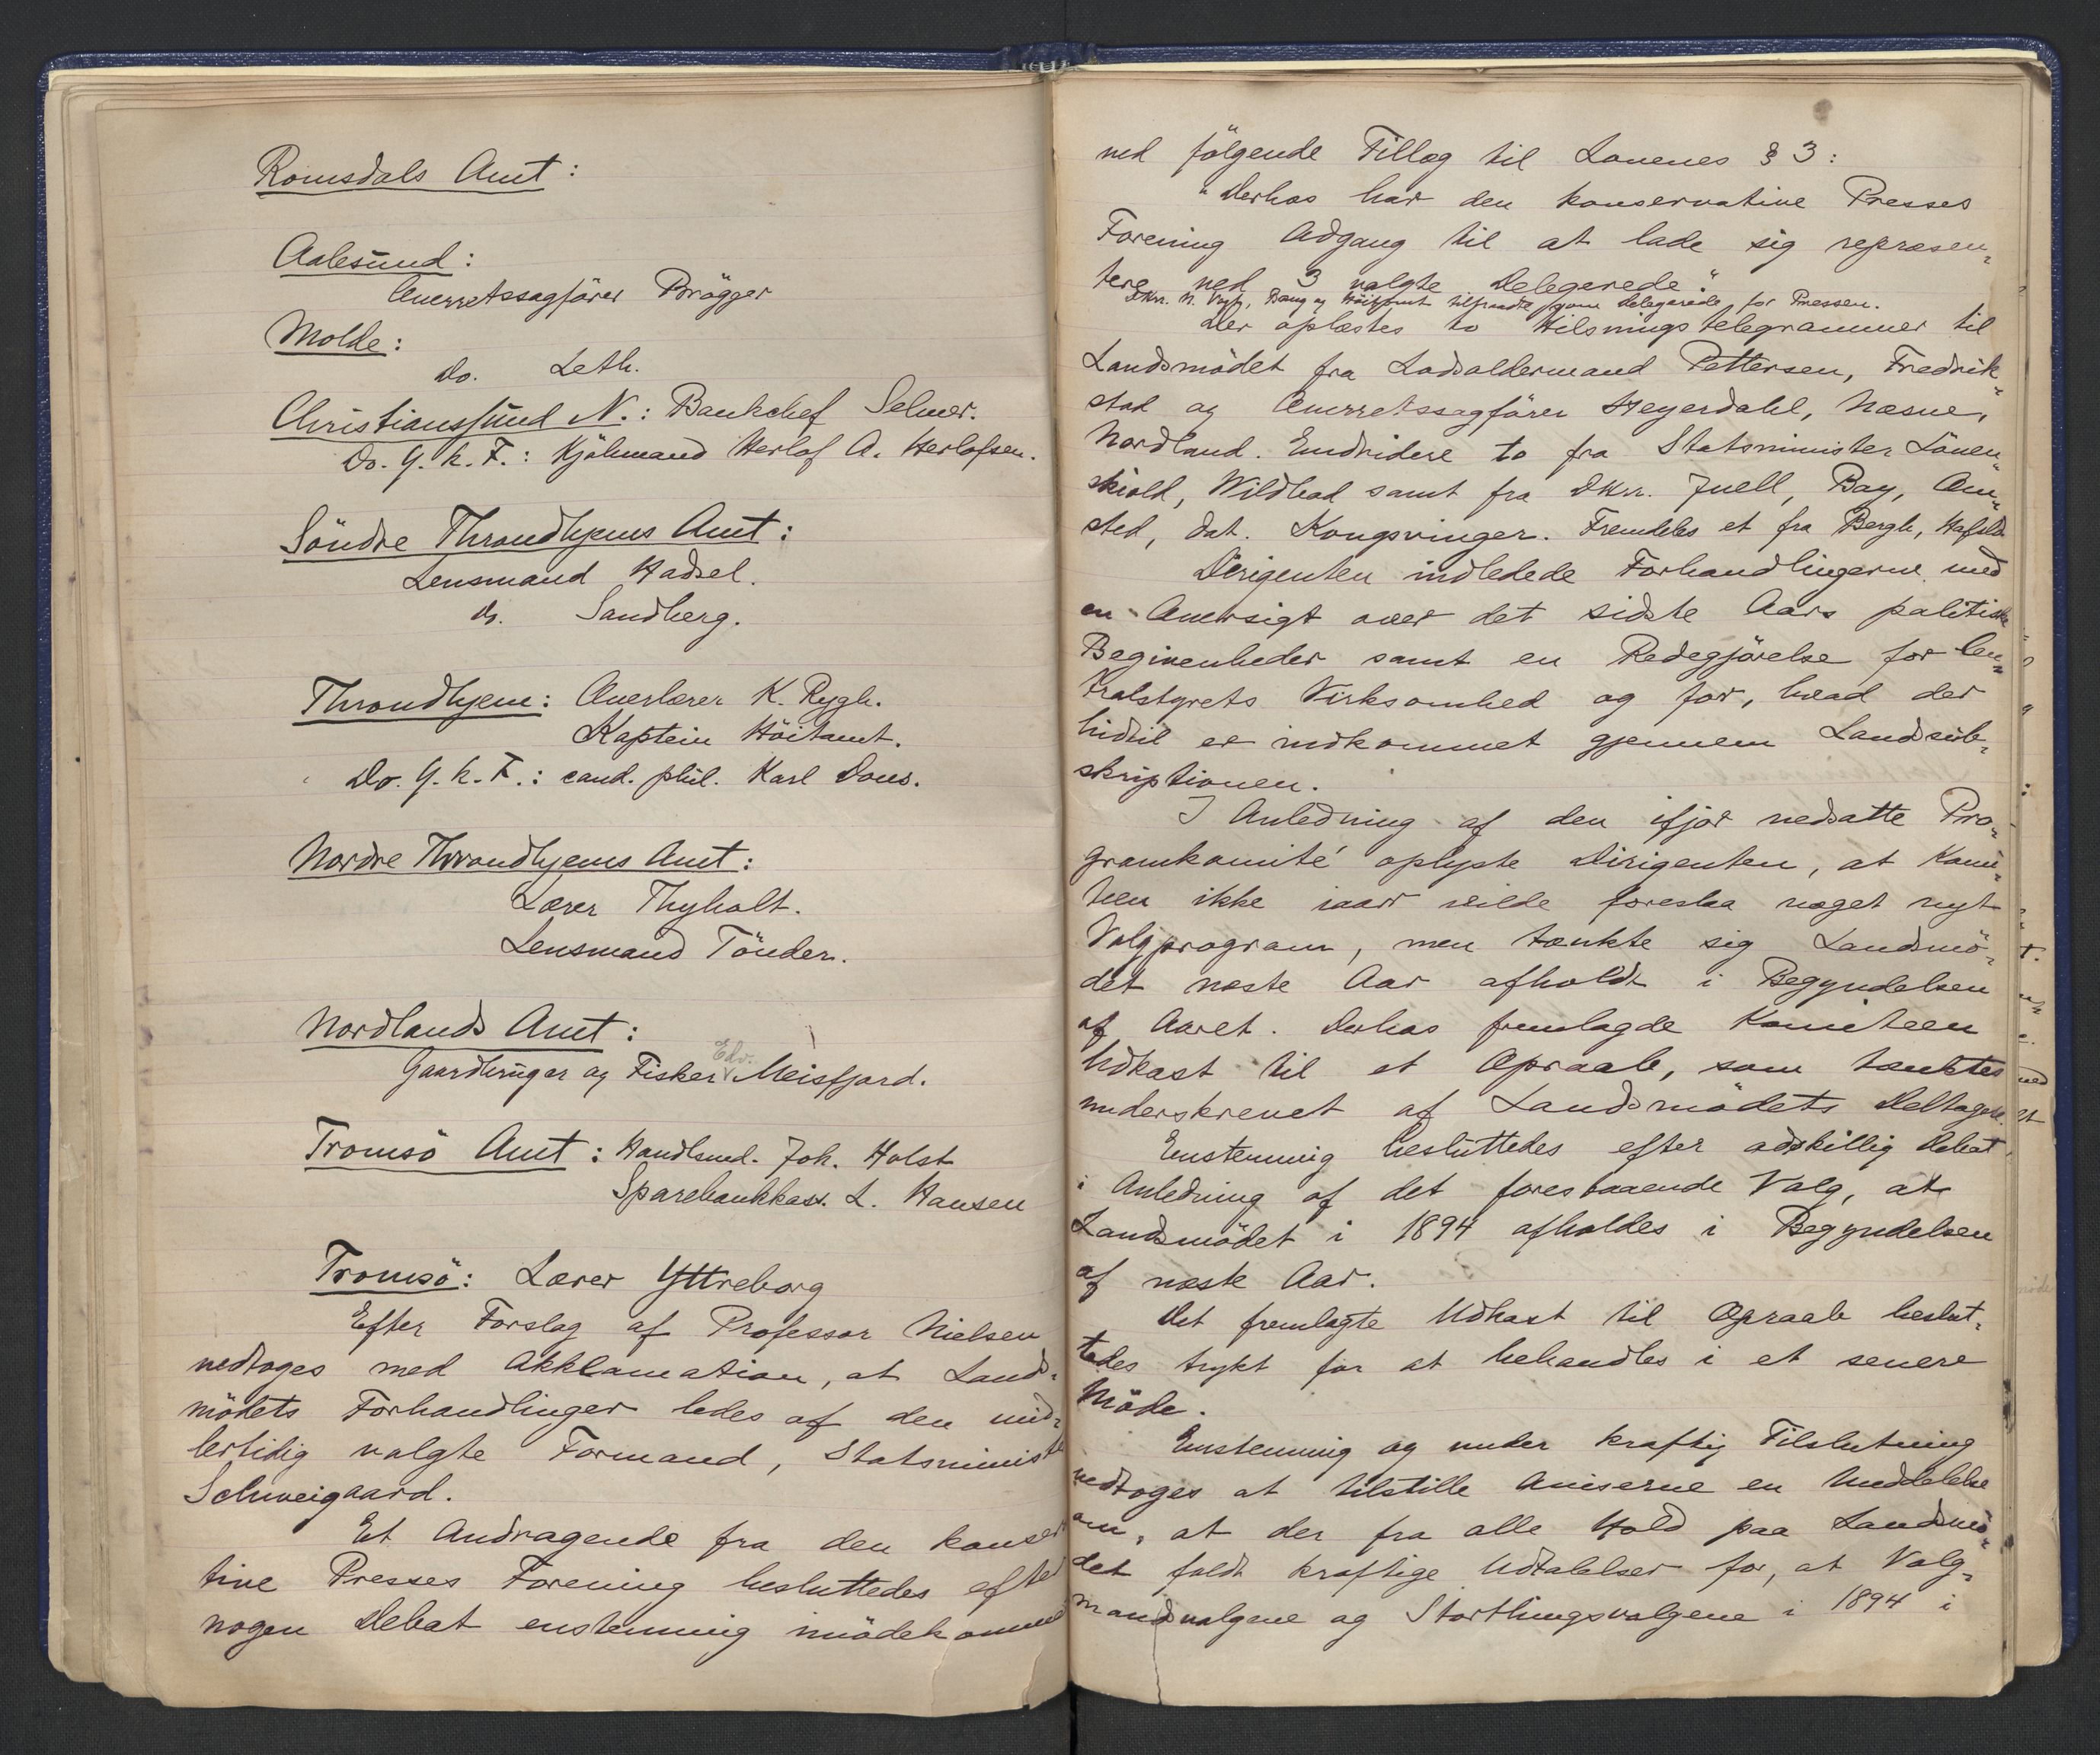 Romsdals Amt:
Aalesund:
Overretssagförer Brögger
Molde:
Do. Leth.
Christianssund N.: Bankchef Selmer.
Do. G. k. F.: Kjöbmand Herlof A. Herlofsen.
Söndre Throndhjems Amt:
Lensmand Hadsel.
Do. Sandberg.
Throndhjem: Overlærer K. Rygh.
Kaptein Höitomt.
Do. G. k. F.: cand. phil. Karl Dons.
Nordre Throndhjems Amt:
Lærer Thyholt.
Lensmand Tönder.
Nordlands Amt:
Gaardbruger og Fisker Edv. Meisfjord.
Tromsö Amt: Handlsmd. Joh. Holst
Sparebankkass. L. Hansen
Tromsö: Lærer Yttreborg
Efter Forslag af Professor Nielsen
vedtoges med Akklamation, at Lands-
mödets Forhandlinger ledes af den mid-
lertidig valgte Formand, Statsministe
Schweigaard.
Et Andragende fra den konser
tive Presses Forening besluttedes efter
nogen Debat enstemmig imödekomme
ved fölgende Tillæg til Lovenes § 3:
"Derhos har den konservative Presses
Forening Adgang til at lade sig repræsen-
tere ved 3 valgte Delegerede."
DHrr. N. Vogt, Bang og Höitomt tilstaads som Delegerede for Pressen.
Der oplæstes to Hilsningstelegrammer til
Landsmödet fra Lodsoldermand Pettersen, Fredrik-
stad og Overretssagförer Heyerdahl, Næsne,
Nordland. Endvidere to fra Statsminister Löven-
skiold, Wildbad samt fra DHrr. Juell, Bay, Om-
sted, dat. Kongsvinger. Fremdeles et fra Bergh, Hafsld
Dirigenten indledede Forhandlingerne med
en Oversigt over det sidste Aars politiske
Begivenheder samt en Redegjörelse for Cen-
tralstyrets Virksomhed og for, hvad der
hidtil er indkommet gjennem Landssub-
skriptionen.
I Anledning af den ifjor nedsatte Pro-
gramkomité oplyste Dirigenten, at Komi-
teen ikke iaar vilde foreslaa noget nyt
Valgprogram, men tænkte sig Landsmö-
det næste Aar afholdt i Begyndelsen
af Aaret. Derhos fremlagde Komiteen
Udkast til et Opraab, som tænktes
underskrevet af Landsmödets Deltagere.
Enstemmig besluttedes efter adskillig Debat,
i Anledning af det forestaaende Valg, at
Landsmödet i 1894 afholdes i Begyndelsen
af næste Aar.
Det fremlagte Udkast til Opraab beslut-
tedes trykt for at behandles i et senere
Möde.
Enstemmig og under kraftig Tilslutning
vedtoges at tilstille Aviserne en Meddelelse
om, at der fra alle Hold paa Landsmö-
det faldt kraftige Udtalelser for, at Valg-
mandsvalgene og Storthingsvalgene i 1894 i